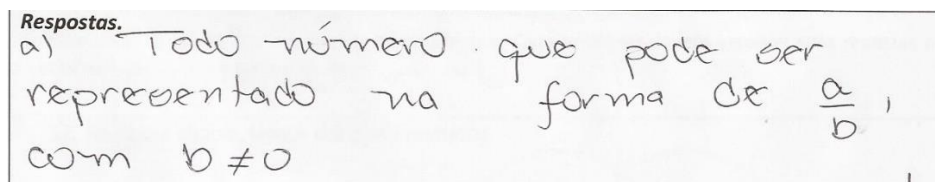 Respostas.
a) Todo número que pode ser
representado na forma de a/b,
com b ≠ 0